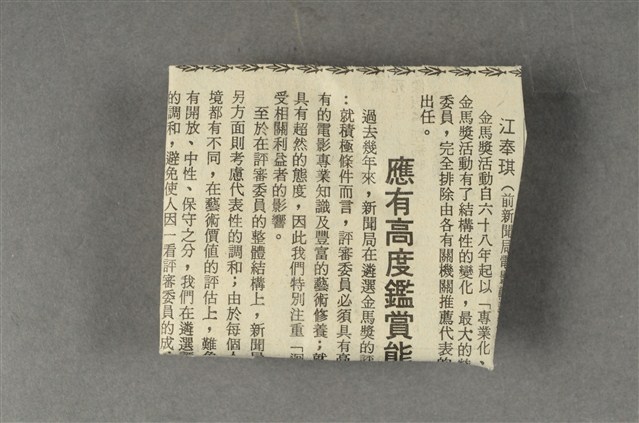 江奉琪（前新聞局
金馬獎活動自六十八年起以「專業化
金馬獎活動有了結構性的變化，最大的
委員，完全排除由各有關機關推薦代表的
出任。
應有高度鑑賞能
過去幾年來，新聞局在遴選金馬獎的評
：就積極條件而言，評審委員必須具有高
有的電影專業知識及豐富的藝術修養；就
具有超然的態度，因此我們特別注重「迴
受相關利益者的影響。
至於在評審委員的整體結構上，新聞局
另方面則考慮代表性的調和；由於每個人
境都有不同，在藝術價值的評估上，難免
有開放、中性、保守之分，我們在遴選
的調和，避免使人因一看評審委員的成